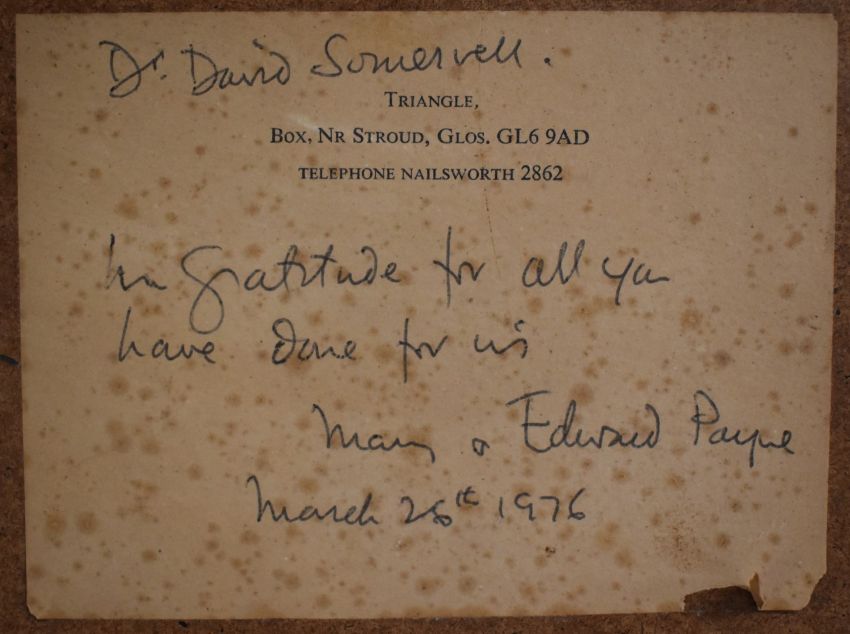 Dr. David Somervell.
TRIANGLE,
BOX, NR STROUD, GLOS. GL6 9AD
TELEPHONE NAILSWORTH 2862
In Gratitude for all you
have done for us
Mary & Edward Payne
March 26th 1976